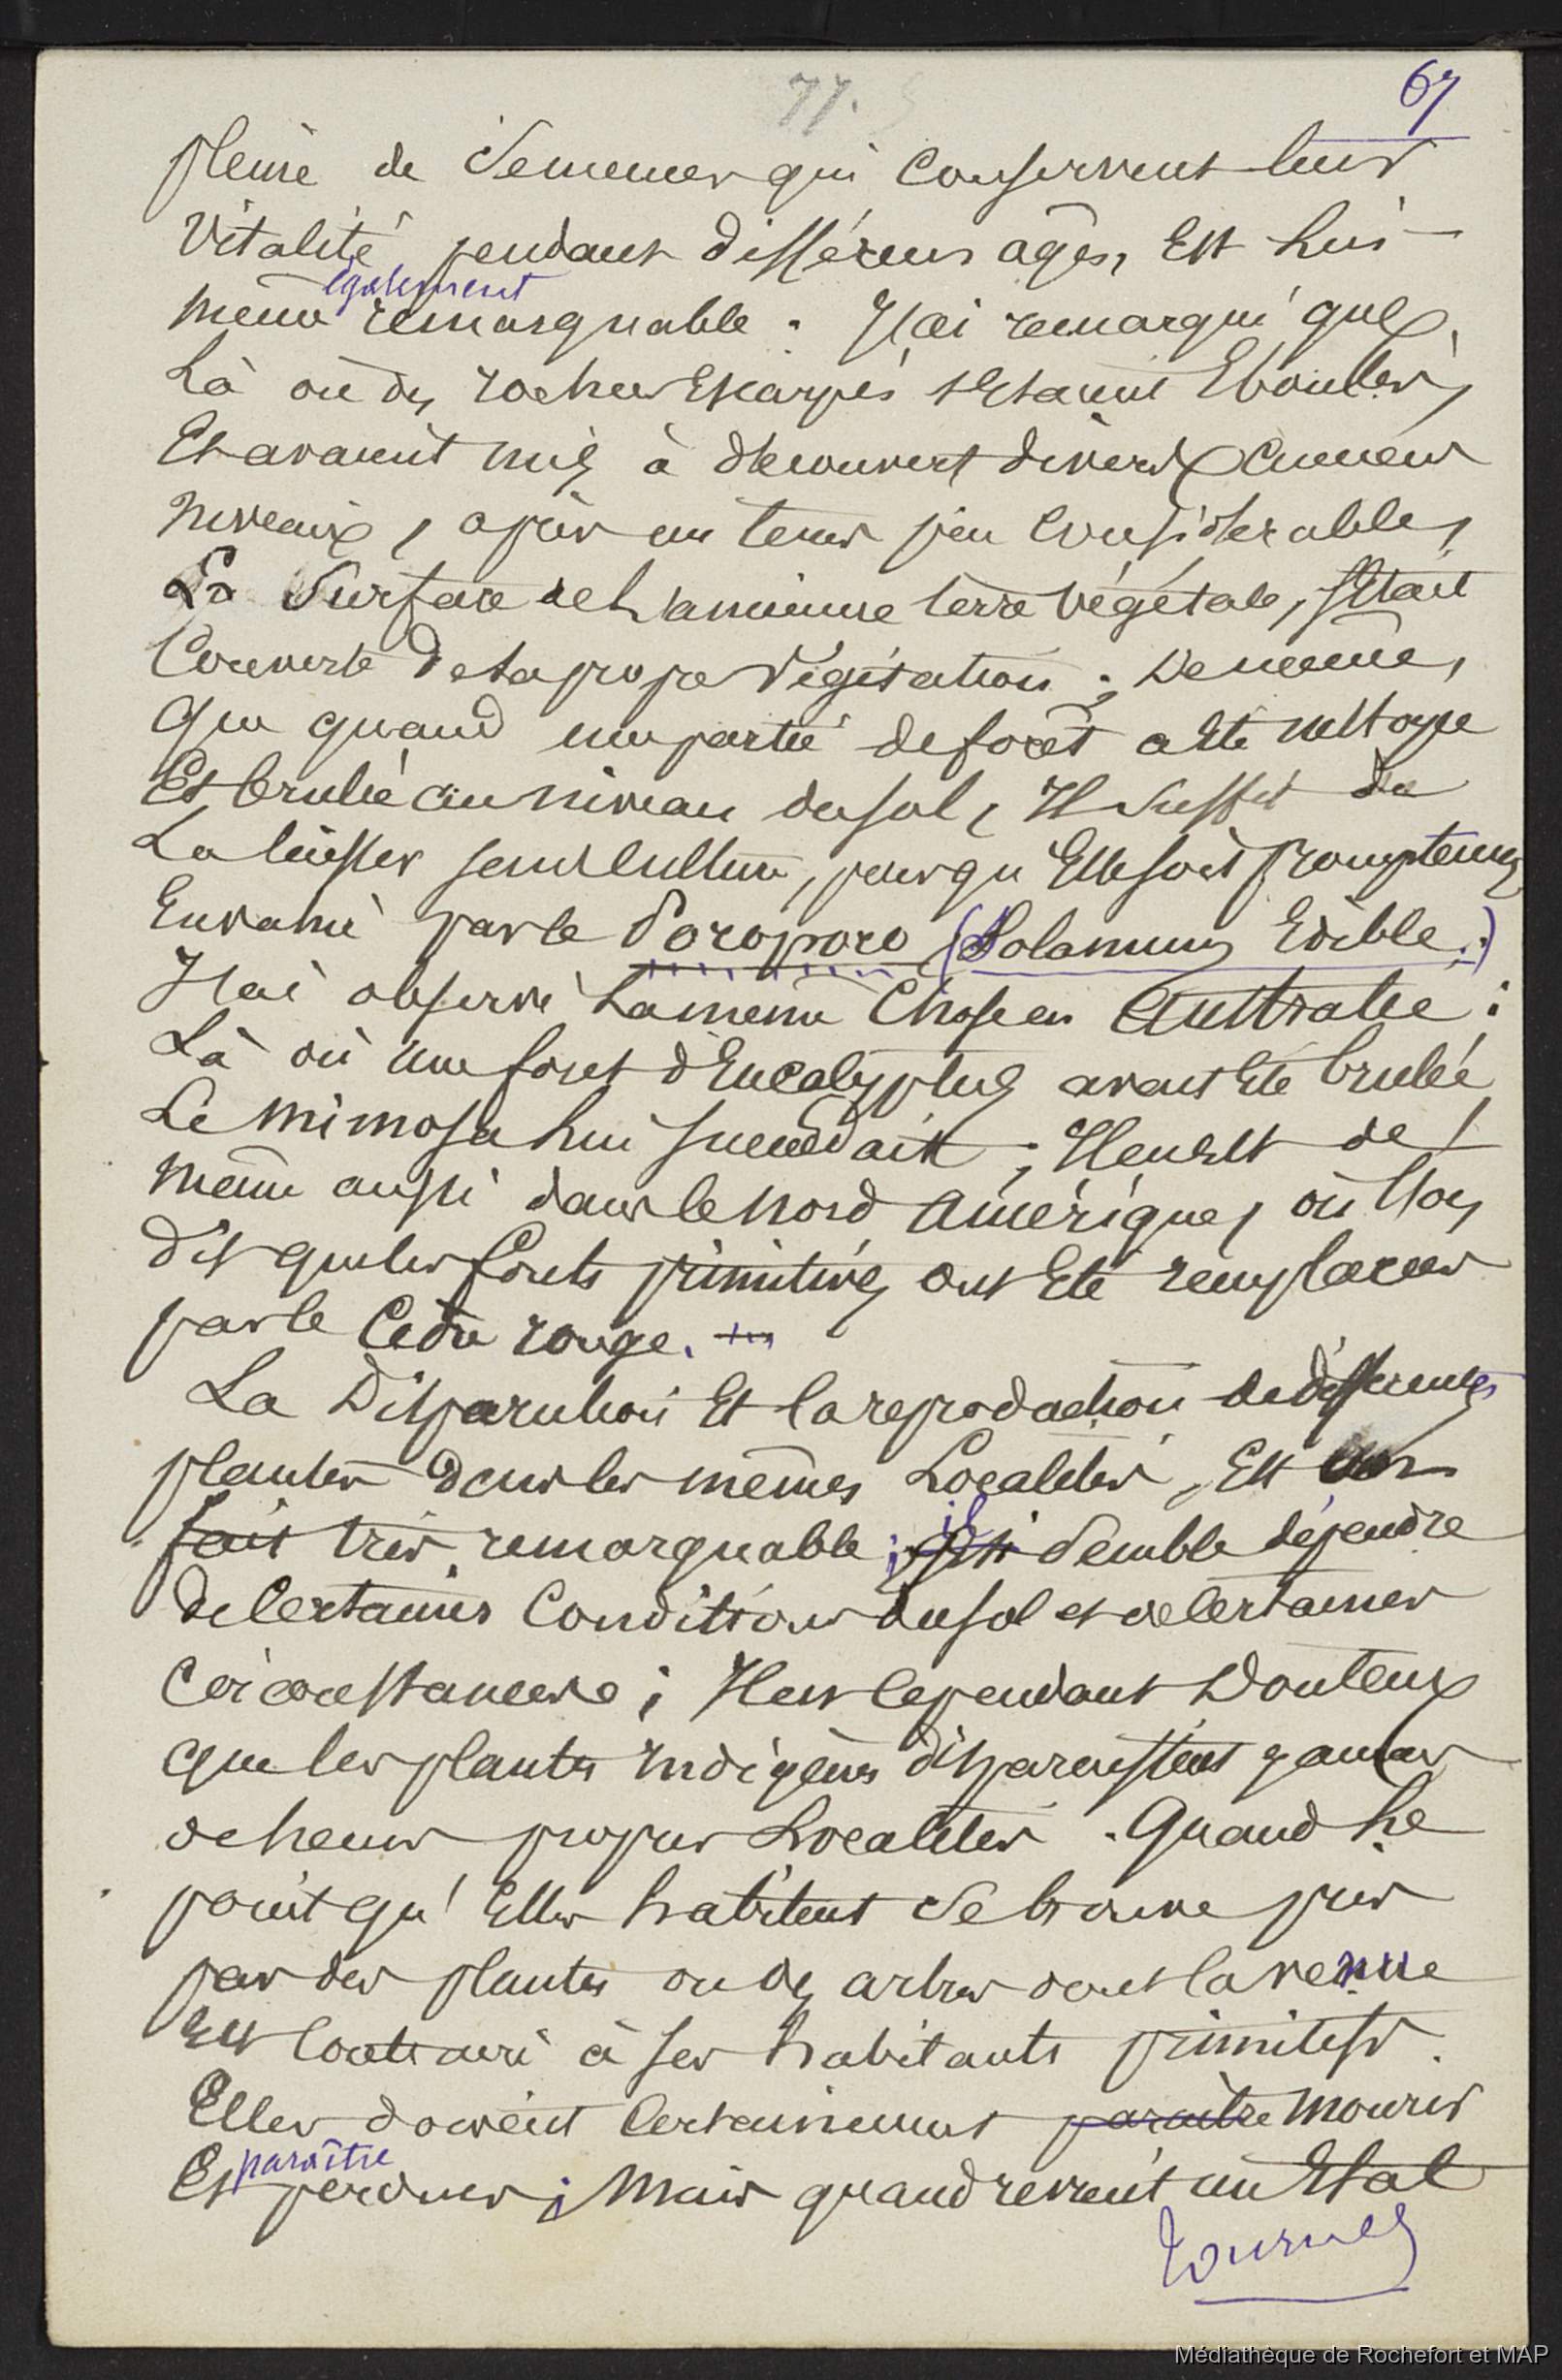 77.
67
pleine de Semences qui Conservent leur
Vitalité pendant différens âges, Est Lui-
même également remarquable. J'ai remarqué que,
Là où des rochers Escarpés s'Etaient Eboulés,
Et avaient mis à découvert divers anciens
niveaux, après un tems peu Considérable,
La Surface de L'ancienne terre végétale, s'Etait
Couverte de sa propre Végétation ; De même,
Que quand une partie de forêt a Eté nettoyée
Et brulée au niveau du sol, Il Suffit de
La laisser sans Culture, pour qu'Elle soit promptement
Envahie par le Poroporo (Solanum Edible.)
J'ai observé La même Chose en Australie :
Là où une foret d'Eucalyptus avait Eté brulée
Le Mimosa Lui succédait ; Il en Est de
même aussi dans le Nord Amérique, où l'on
dit que les forets primitives ont Eté remplacées
par le Cèdre rouge.
La Disparution Et la reproduction de differentes
plantes dans les mêmes Localités, Est un
fait très remarquable ; il Semble dépendre
de Certaines Conditions du sol et de Certaines
Circonstances ; Il est Cependant Douteux
que les plantes Indigènes disparaissent jamais
de Leurs propres Localités. Quand Le
point qu'Elles habitent Se trouve pris
par des plantes ou des arbres dont la venue
Est Contraire à ses habitants primitifs.
Elles doivent Certainement paraitre mourir
Et paraître perdues ; Mais quand revient un Etat
Tournez
Médiathèque de Rochefort et MAP